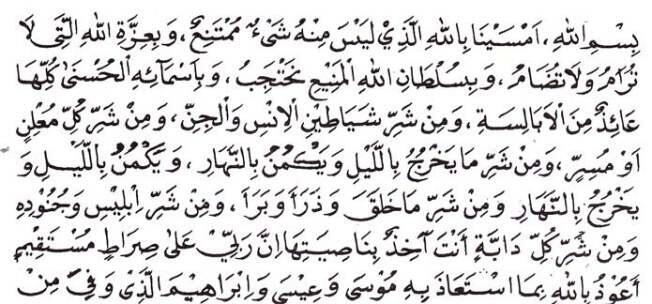 بِسْمِ اللهِ، اَمْسَيْنَا بِاللهِ الَّذِيْ لَيْسَ مِنْهُ شَيْءٌ مُمْتَنِعٌ، وَبِعِزَّةِ اللهِ الَّتِيْ لَا
تُرَامُ وَلَا تُضَامُ، وَبِسُلْطَانِ اللهِ الْمَنِيْعِ نَحْتَجِبُ، وَبِاَسْمَآئِهِ الْحُسْنٰى كُلِّهَا
عَائِذٌ مِنَ الْاَبَالِسَةِ، وَمِنْ شَرِّ شَيَاطِيْنِ الْاِنْسِ وَالْجِنِّ، وَمِنْ شَرِّ كُلِّ مُعْلِنٍ
اَوْ مُسِرٍّ، وَمِنْ شَرِّ مَا يَخْرُجُ بِاللَّيْلِ وَيَكْمُنُ بِالنَّهَارِ، وَيَكْمُنُ بِاللَّيْلِ وَ
يَخْرُجُ بِالنَّهَارِ وَمِنْ شَرِّ مَا خَلَقَ وَذَرَأَ وَبَرَأَ، وَمِنْ شَرِّ اِبْلِيْسَ وَجُنُوْدِهِ
وَمِنْ شَرِّ كُلِّ دَابَّةٍ اَنْتَ آخِذٌ بِنَاصِيَتِهَا اِنَّ رَبِّيْ عَلٰى صِرَاطٍ مُسْتَقِيْمٍ
اَعُوْذُ بِاللهِ بِمَا اسْتَعَاذَ بِهِ مُوْسٰى وَعِيْسٰى وَاِبْرَاهِيْمَ الَّذِيْ وَفّٰى مِنْ